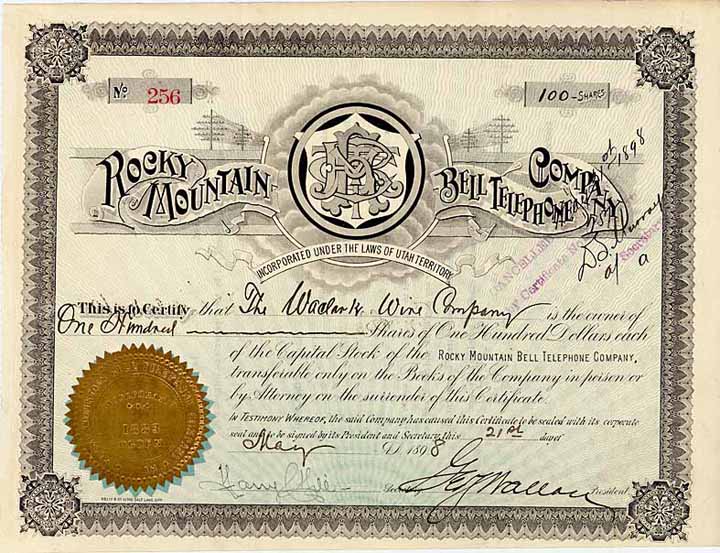 No. 256
100-SHARES
ROCKY MOUNTAIN BELL TELEPHONE COMPANY
INCORPORATED UNDER THE LAWS OF UTAH TERRITORY.
CANCELLED
Certificate
Secretary
1898
This is to Certify that The Waclark Wire Company is the owner of
One Hundred Shares of One Hundred Dollars each
of the Capital Stock of the ROCKY MOUNTAIN BELL TELEPHONE COMPANY,
transferable only on the Books of the Company in person or
by Attorney on the surrender of this Certificate.
IN TESTIMONY WHEREOF, the said Company has caused this Certificate to be sealed with its corporate
seal and to be signed by its President and Secretary this 21st day of
May A.D. 1898
Secretary Geo Y Wallace President.
1883